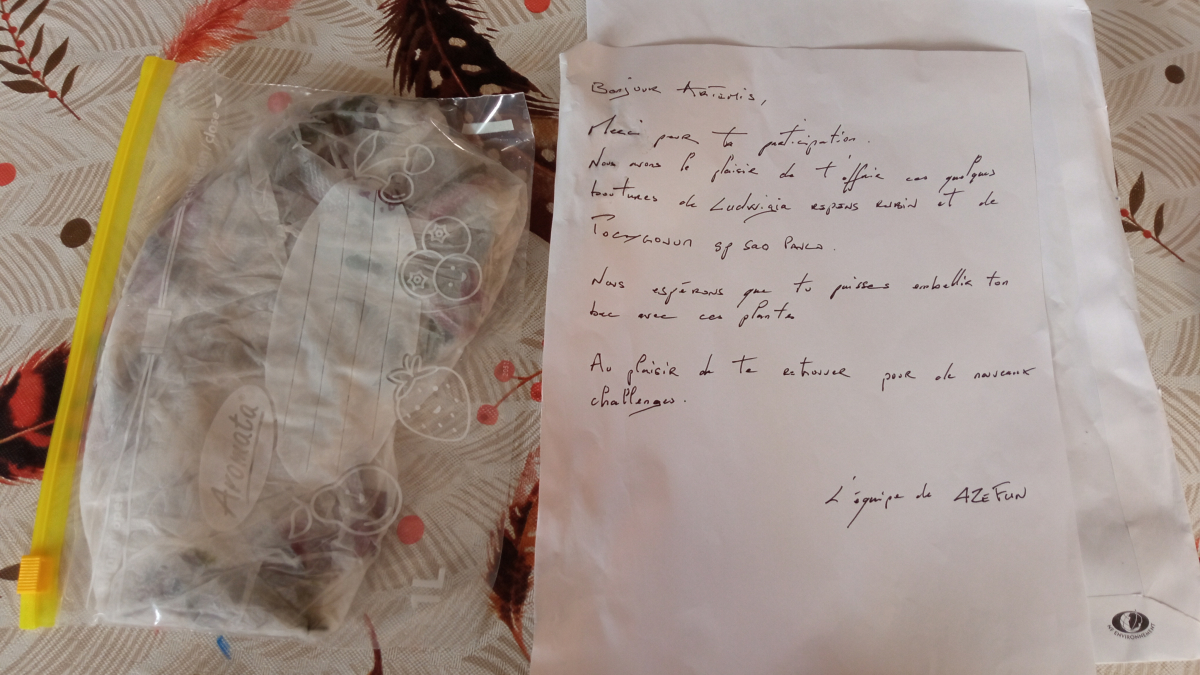 Bonjour Artemis,
Merci pour ta participation.
Nous avons le plaisir de t'offrir ces quelques
boutures de Ludwigia repens rubin et de
Polygonum sp sao Paulo.
Nous espérons que tu puisses embellir ton
bac avec ces plantes
Au plaisir de te retrouver pour de nouveaux
challenges.
L'équipe de AZEFUN
Aromata
1L
NF ENVIRONNEMENT